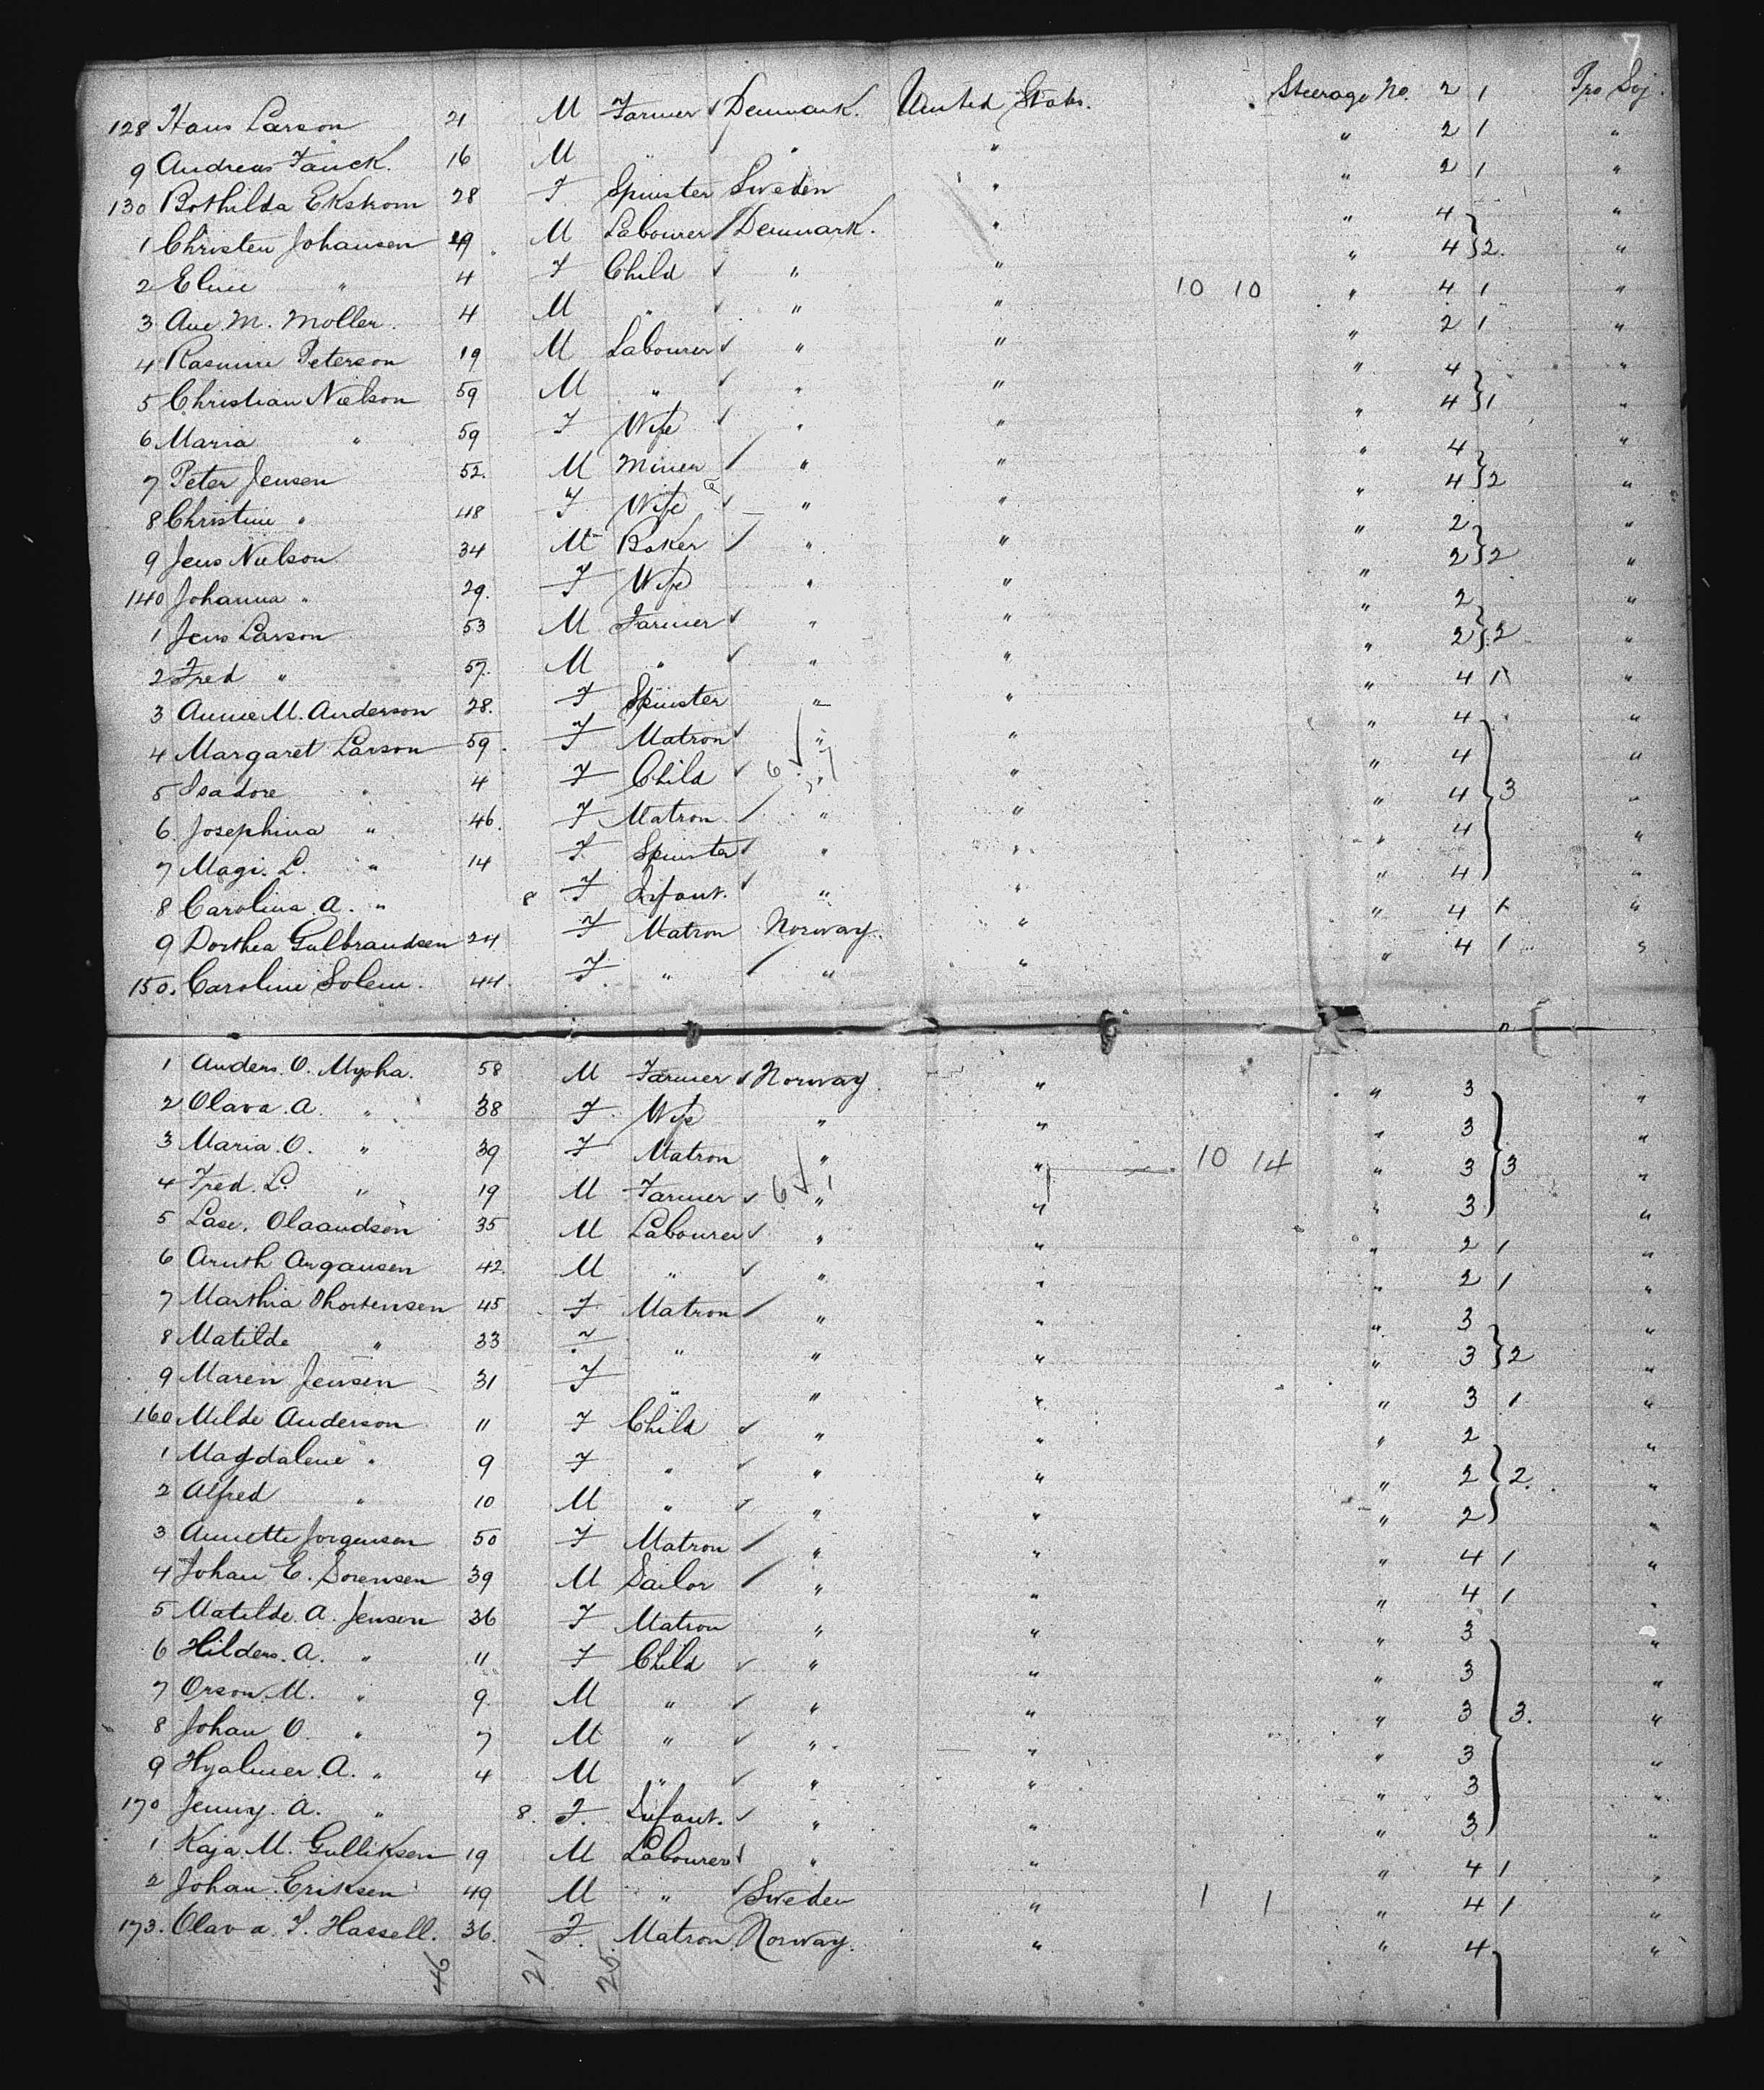 7
128 Hans Larson 21 M Farmer Denmark. United States. Steerage No. 2 1 Pro Soj.
9 Andreas Fanck. 16 M " " " " 2 1 "
130 Bothilda Ekstrom 28 F Spinster Sweden " " 2 1 "
1 Christen Johansen 29 M Labourer Denmark. " " 4 "
2 Eline " 4 F Child " " " 4 2. "
3 Ane M. Moller. 4 M " " " 10 10 " 4 1 "
4 Rasmine Peterson 19 M Labourer " " " 2 1 "
5 Christian Nielson 59 M " " " " 4 "
6 Maria " 59 F Wife " " " 4 1 "
7 Peter Jensen 52. M Miner " " " 4 "
8 Christine " 48 F Wife " " " 4 2 "
9 Jens Nielson 34 M Baker " " " 2 "
140 Johanna " 29. F Wife " " " 2 2 "
1 Jens Larson 53 M Farmer " " " 2 "
2 Fred " 57. M " " " " 2 2 "
3 Annie M. Anderson 28. F Spinster " " " 4 1 "
4 Margaret Larson 59. F Matron " " " 4 "
5 Isadore " 4 F Child 6 " " " 4 "
6 Josephina " 46. F Matron " " " 4 3 "
7 Magi. L. " 14 F Spinster " " " 4 "
8 Carolina A. " 8 F Infant. " " " 4 "
9 Dorthea Gulbrandsen 24 F Matron Norway. " " 4 1 "
150. Caroline Solem. 44. F. " " " " 4 1 "
1 Anders. O. Mypha. 58 M Farmer Norway. " " 3 "
2 Olava. A. " 38 F. Wife " " " 3 "
3 Maria. O. " 39 F Matron " " 10 14 " 3 3 "
4 Fred. L. " 19 M Farmer 6 " " " 3 "
5 Lase. Olaandsen 35 M Labourer " " " 2 1 "
6 Arnth Argansen 42. M " " " " 2 1 "
7 Marthia Thortensen 45 F Matron " " " 3 "
8 Matilde " 33 F " " " " 3 2 "
9 Maren Jensen 31 F " " " " 3 1 "
160 Milde Anderson 11 F Child " " " 2 "
1 Magdalene " 9 F " " " " 2 2. "
2 Alfred " 10 M " " " " 2 "
3 Annette Jorgensen 50 F Matron " " " 4 1 "
4 Johan E. Sorensen 39 M Sailor " " " 4 1 "
5 Matilde. A. Jensen 36 F Matron " " " 3 "
6 Hilders. A. " 11 F Child " " " 3 "
7 Orson. M. " 9. M " " " " 3 3. "
8 Johan O. " 7 M " " " " 3 "
9 Hyalmer. A. " 4 M " " " " 3 "
170 Jenny. A. " 8. F. Infant. " " " 3 "
1 Kaja. M. Gulliksen 19 M Labourer " " " 4 1 "
2 Johan. Eriksen 49 M " Sweden " 1 1 " 4 1 "
173. Olava. F. Hassell. 36. F. Matron Norway. " " 4 "
46 21 25